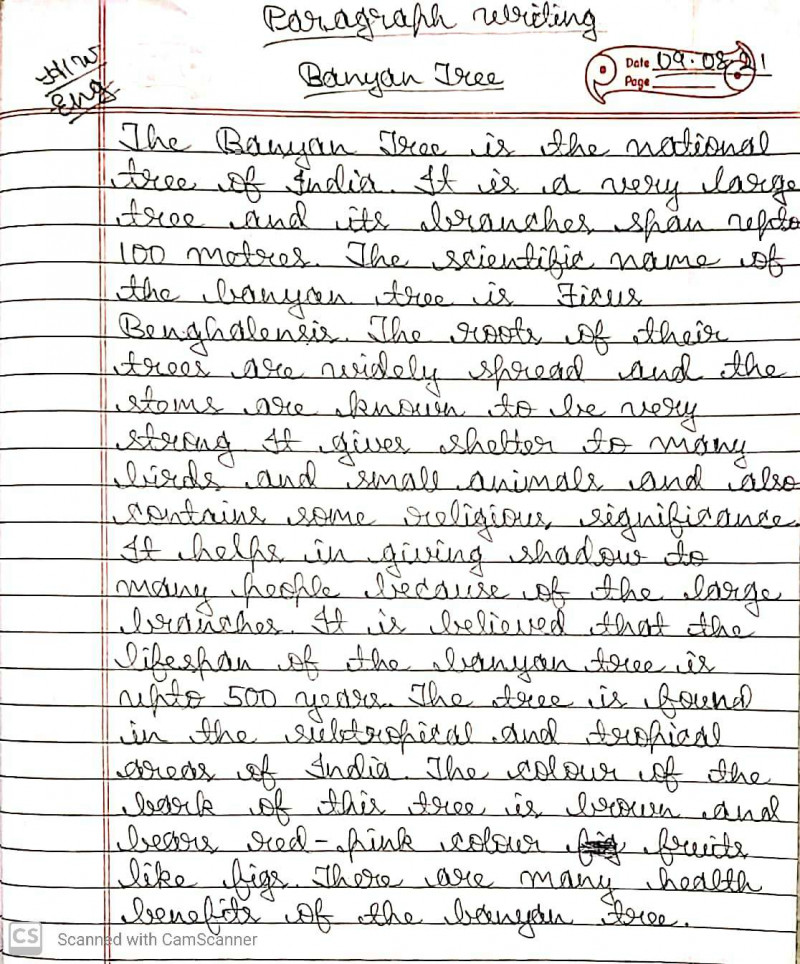 Paragraph writing
H/W
Eng
Banyan Tree
Date 09.08.21
Page
The Banyan Tree is the national
tree of India. It is a very large
tree and its branches span upto
100 metres. The scientific name of
the banyan tree is Ficus
Benghalensis. The roots of their
trees are widely spread and the
stems are known to be very
strong It gives shelter to many
birds and small animals and also
contains some religious significance.
It helps in giving shadow to
many people because of the large
branches. It is believed that the
lifespan of the banyan tree is
upto 500 years. The tree is found
in the subtropical and tropical
areas of India. The colour of the
bark of this tree is brown and
bears red-pink colour fruits
like figs. There are many health
benefits of the banyan tree.
CS Scanned with CamScanner